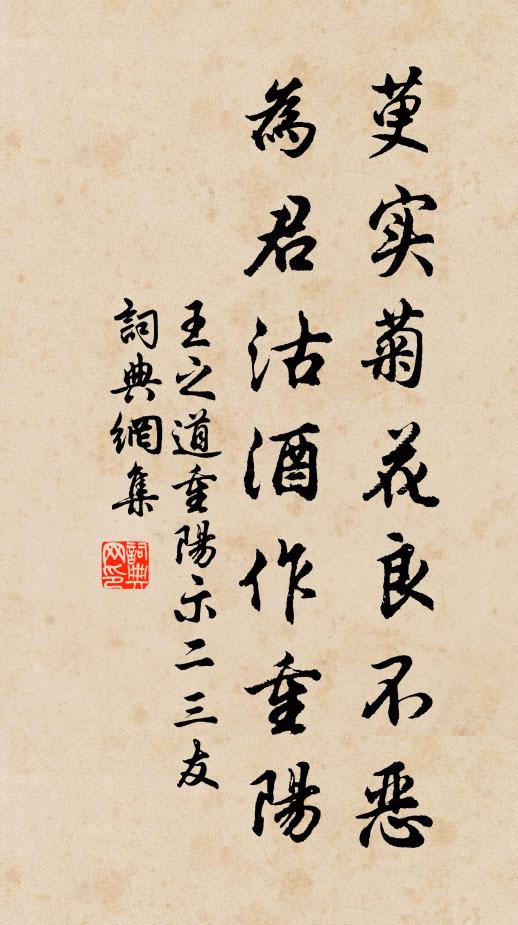 萸实菊花良不恶
為君沽酒作重陽
王之道重陽示二三友
詞典網集
詞典网印